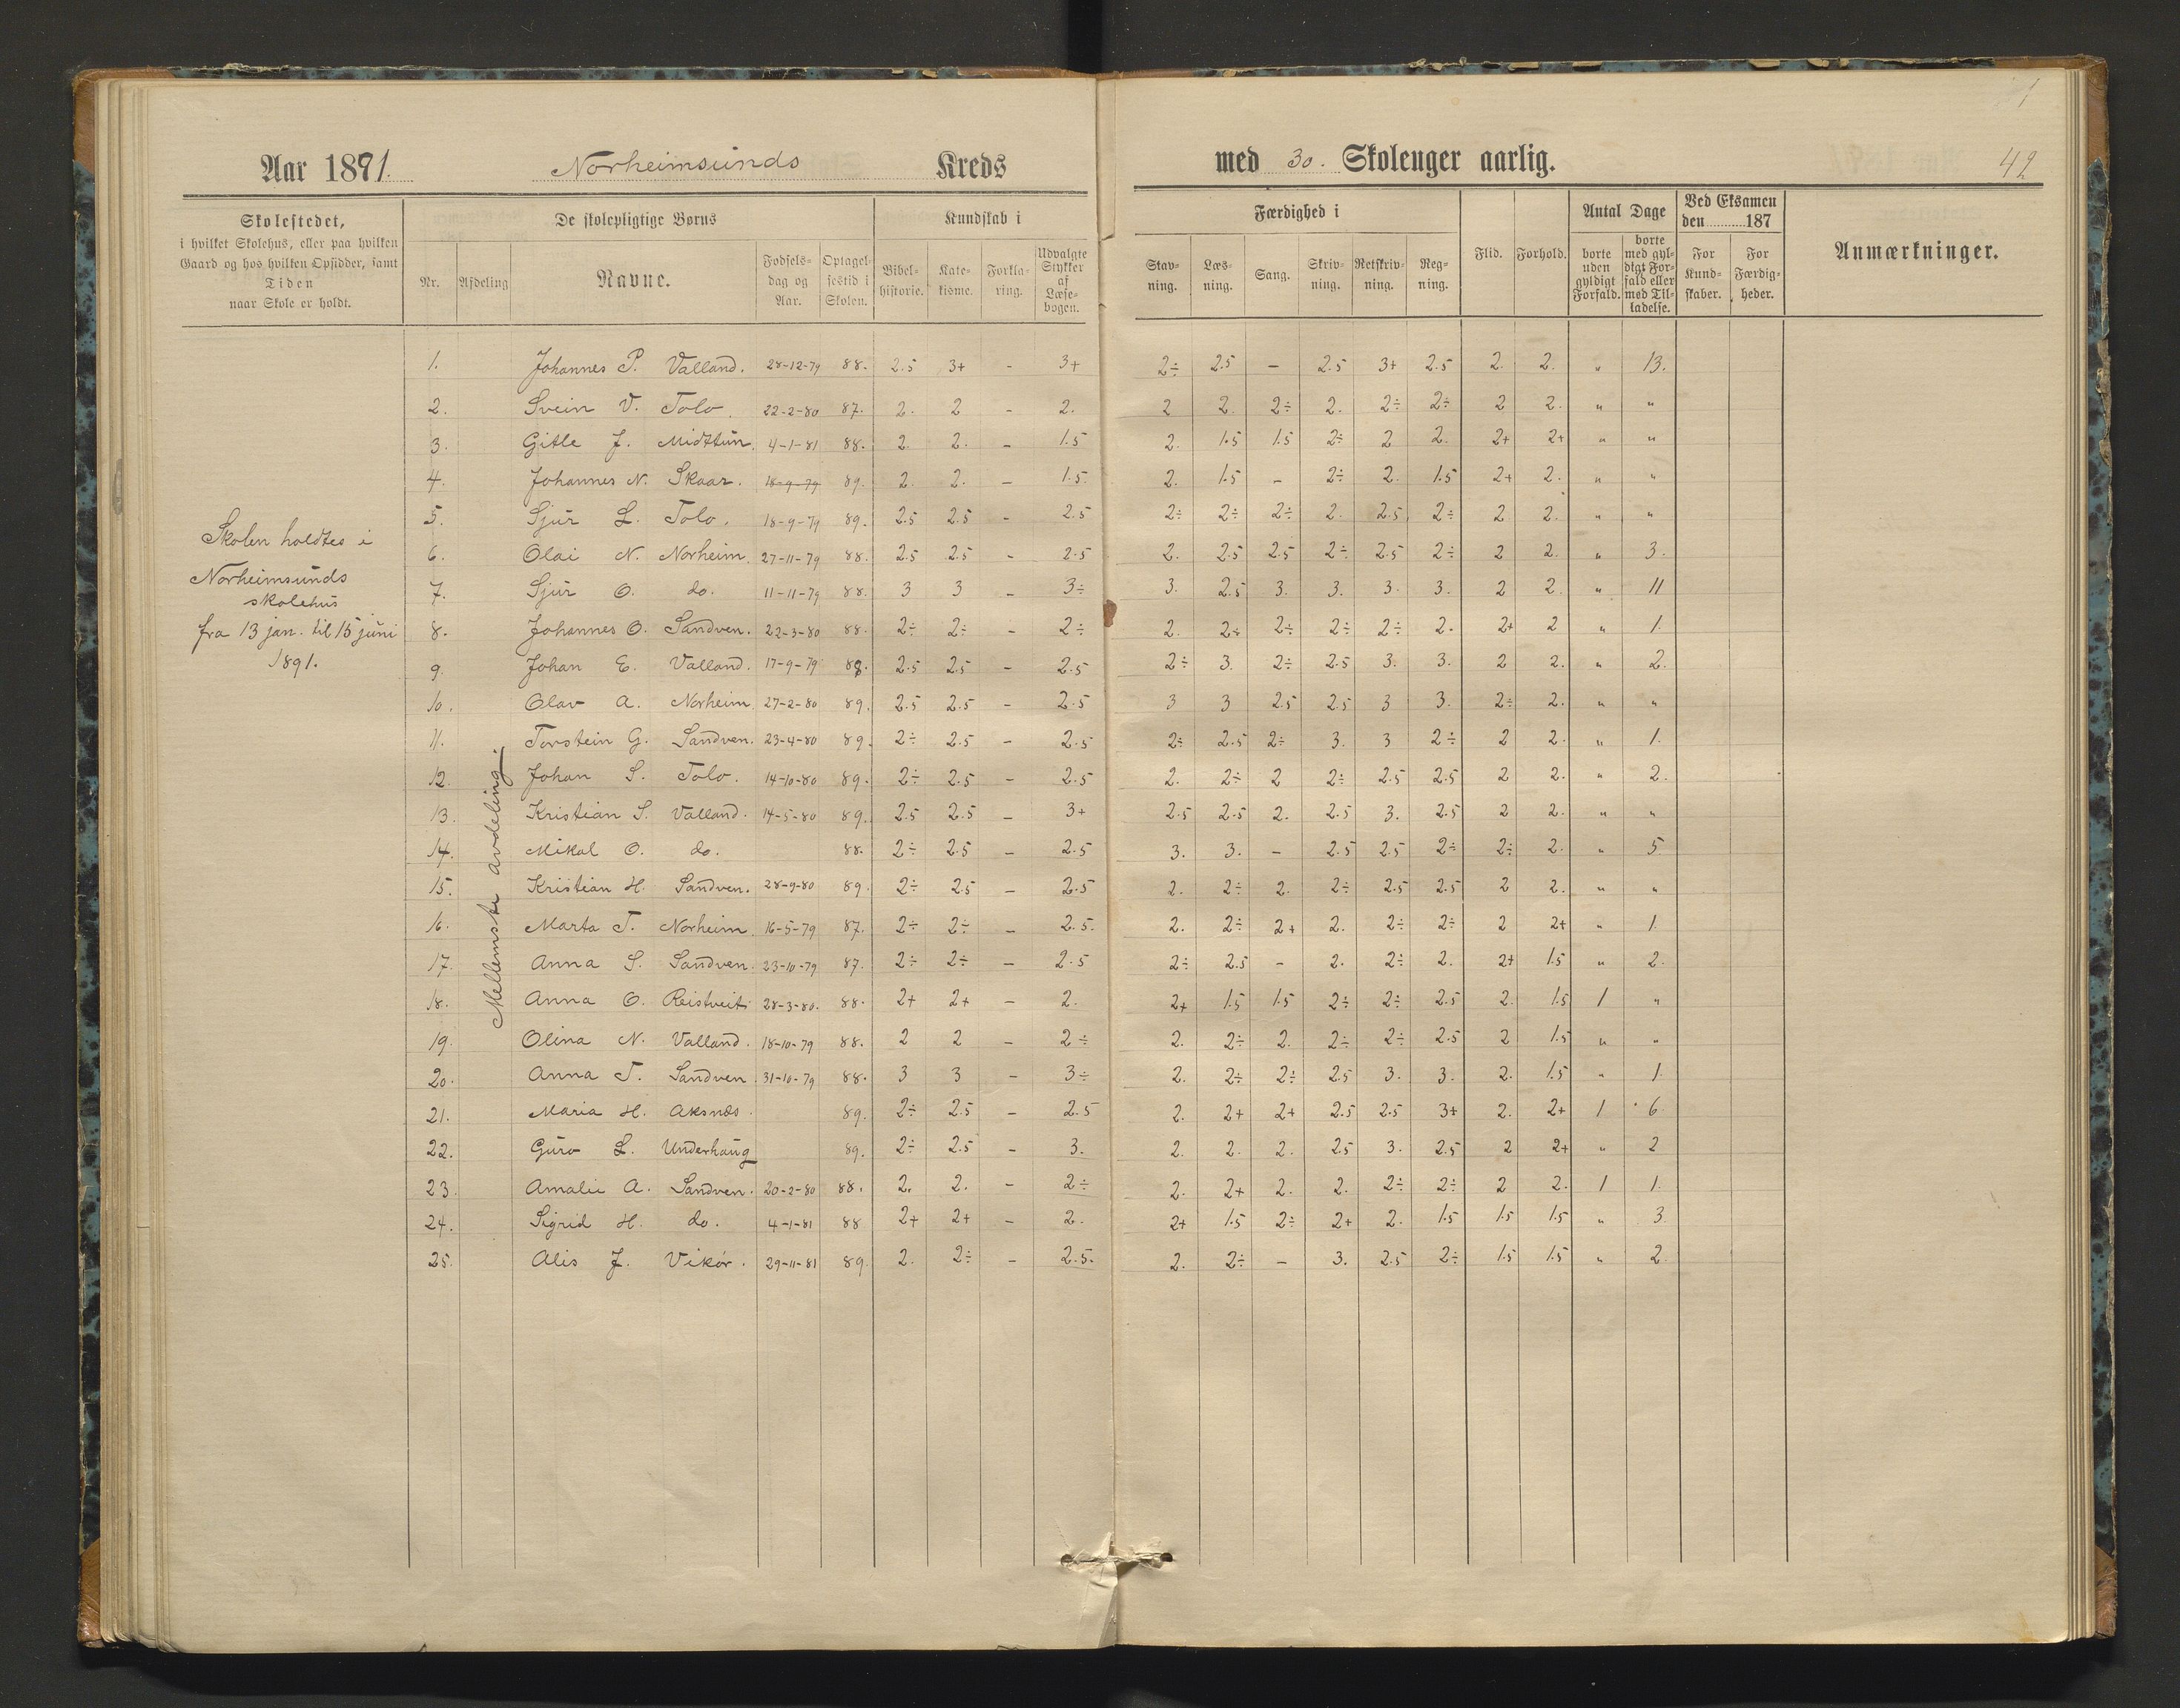 Aar 1891. Norheimsunds Kreds med 30. Skolenger aarlig. 42
Skolestedet, i hvilket Skolehus, eller paa hvilken Gaard og hos hvilken Opsidder, samt Tiden naar Skole er holdt.
De skolepligtige Børns
Nr. Afdeling Navne. Fødselsdag og Aar. Optagelsestid i Skolen.
Kundskab i
Bibelhistorie. Katekisme. Forklaring. Udvalgte Stykker af Læsebogen.
Færdighed i
Stavning. Læsning. Sang. Skrivning. Retskrivning. Regning.
Flid. Forhold.
Antal Dage
borte uden gyldigt Forfald. borte med gyldigt Forfald eller med Tilladelse.
Ved Eksamen den 187
For Kundskaber. For Færdigheder.
Anmærkninger.
Skolen holdtes i
Norheimsunds
skolehus
fra 13 jan. til 15 juni
1891.
Mellemste avdeling.
1. Johannes P. Valland. 28-12-79 88. 2.5 3+ - 3+ 2÷ 2.5 - 2.5 3+ 2.5 2. 2. " 13.
2. Svein V. Tolo. 22-2-80 87. 2. 2 - 2. 2 2. 2÷ 2. 2÷ 2÷ 2 2. " "
3. Gitle J. Midttun. 4-1-81 88. 2. 2. - 1.5 2. 1.5 1.5 2÷ 2 2. 2+ 2+ " "
4. Johannes N. Skaar. 18-9-79 89. 2. 2. - 1.5. 2. 1.5 - 2÷ 2. 1.5 2+ 2. " "
5. Sjur L. Tolo. 18-9-79 89. 2.5 2.5 - 2.5 2÷ 2÷ 2÷ 2. 2.5. 2÷ 2 2. " "
6. Olai N. Norheim. 27-11-79 88. 2.5 2.5 - 2.5 2. 2.5 2.5 2÷ 2.5 2÷ 2 2. " 3.
7. Sjur O. do. 11-11-79 88. 3 3 - 3÷ 3. 2.5 3. 3. 3. 3. 2 2. " 11
8. Johannes O. Sandven. 22-3-80 88. 2÷ 2÷ - 2÷ 2. 2÷ 2÷ 2÷ 2÷ 2. 2+ 2 " 1.
9. Johan E. Valland. 17-9-79 88. 2.5 2.5 - 2.5 2÷ 3. 2÷ 2.5 3. 3. 2 2. " 2.
10. Olav A. Norheim. 27-2-80 89. 2.5 2.5 - 2.5 3 3 2.5 2.5 3 3. 2÷ 2. " "
11. Torstein G. Sandven. 23-4-80 89. 2÷ 2.5 - 2.5 2÷ 2.5 2÷ 3. 3 2÷ 2 2. " 1.
12. Johan S. Tolo. 14-10-80 89. 2÷ 2.5 - 2.5 2. 2÷ 2 2÷ 2.5 2.5 2 2. " 2.
13. Kristian S. Valland. 14-5-80 89. 2.5 2.5 - 3+ 2.5 2.5 2. 2.5 3. 2.5 2 2. " "
14. Mikal O. do. 88. 2÷ 2.5 - 2.5 3. 3. - 2.5 2.5 2÷ 2÷ 2. " 5
15. Kristian H. Sandven. 28-9-80 89. 2÷ 2.5 - 2.5 2. 2÷ 2. 2÷ 2.5 2.5 2 2. " "
16. Marta T. Norheim. 16-5-79 87. 2÷ 2÷ - 2.5. 2. 2÷ 2+ 2. 2÷ 2÷ 2 2+ " 1.
17. Anna S. Sandven. 23-10-79 87. 2÷ 2÷ - 2.5 2÷ 2.5 - 2. 2÷ 2. 2+ 1.5 " 2.
18. Anna O. Reistveit 28-3-80. 88. 2+ 2+ - 2. 2+ 1.5 1.5 2÷ 2÷ 2.5 2. 1.5 1 "
19. Olina N. Valland. 18-10-79 88. 2 2 - 2÷ 2. 2÷ 2. 2÷ 2÷ 2.5 2 1.5 " "
20. Anna T. Sandven. 31-10-79 88. 3 3 - 3÷ 2. 2÷ 2÷ 2.5 3. 3. 2. 1.5 " 1.
21. Maria H. Aksnes. 89. 2÷ 2.5 - 2.5 2. 2+ 2+ 2.5 2.5 3+ 2. 2+ 1 6.
22. Guro L. Underhaug 89. 2÷ 2.5 - 3. 2. 2. 2. 2.5 3. 2.5 2 2+ " 2
23. Amalie A. Sandven. 20-2-80 88. 2. 2. - 2÷ 2. 2+ 2. 2. 2÷ 2÷ 2 2. 1 1.
24. Sigrid H. do. 4-1-81 88 2+ 2+ - 2. 2+ 1.5 2÷ 2+ 2. 1.5 1.5 1.5 " 3.
25. Alis J. Vikør. 29-11-81 89. 2. 2÷ - 2.5. 2. 2÷ - 3. 2.5 2÷ 1.5 1.5 " 2.